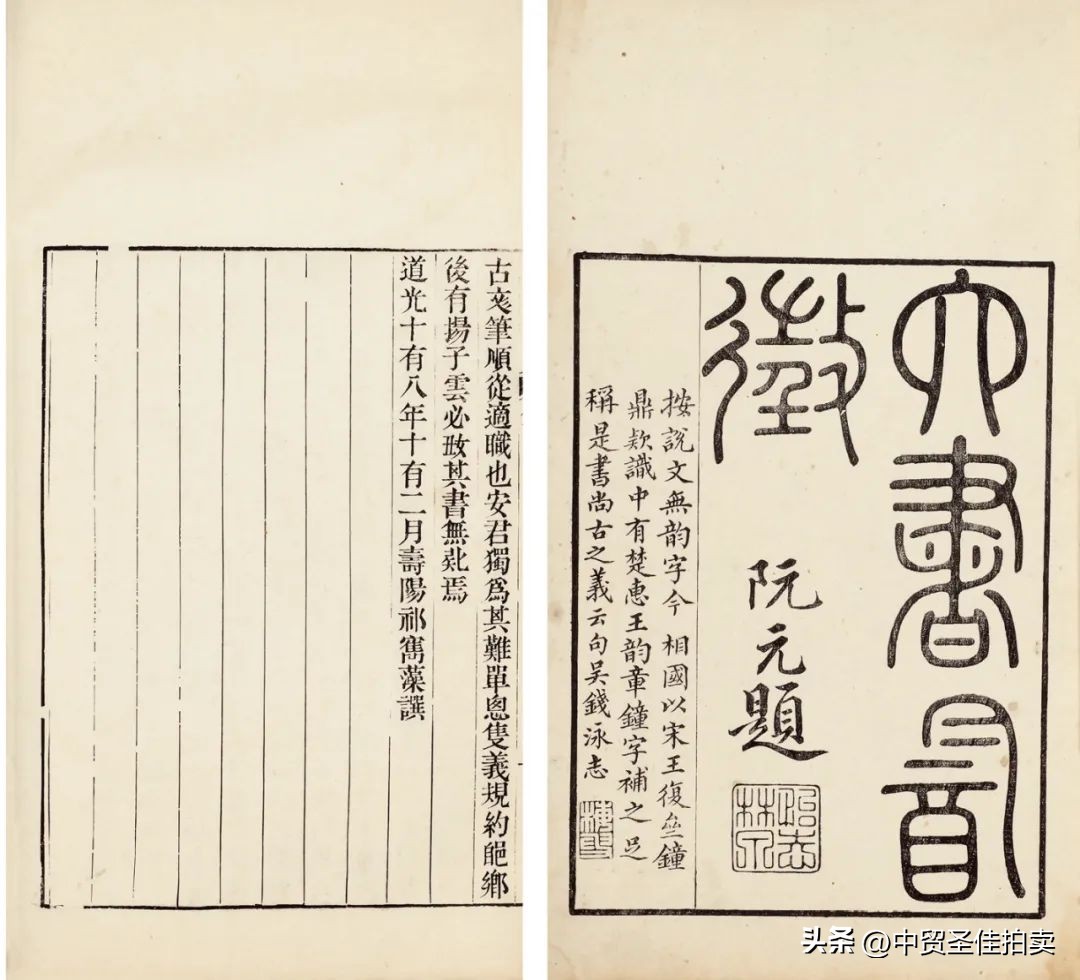 六書韵
徵
阮元題
按說文無韵字今 相國以宋王復亝鐘
鼎欵識中有楚惠王韵章鐘字補之足
稱是書尚古之義云句吳錢泳志
古筆順從適職也安君獨爲其難單恖隻義規約鄉
後有揚子雲必攷其書無焉
道光十有八年十有二月壽陽祁寯藻譔
头条 @中贸圣佳拍卖